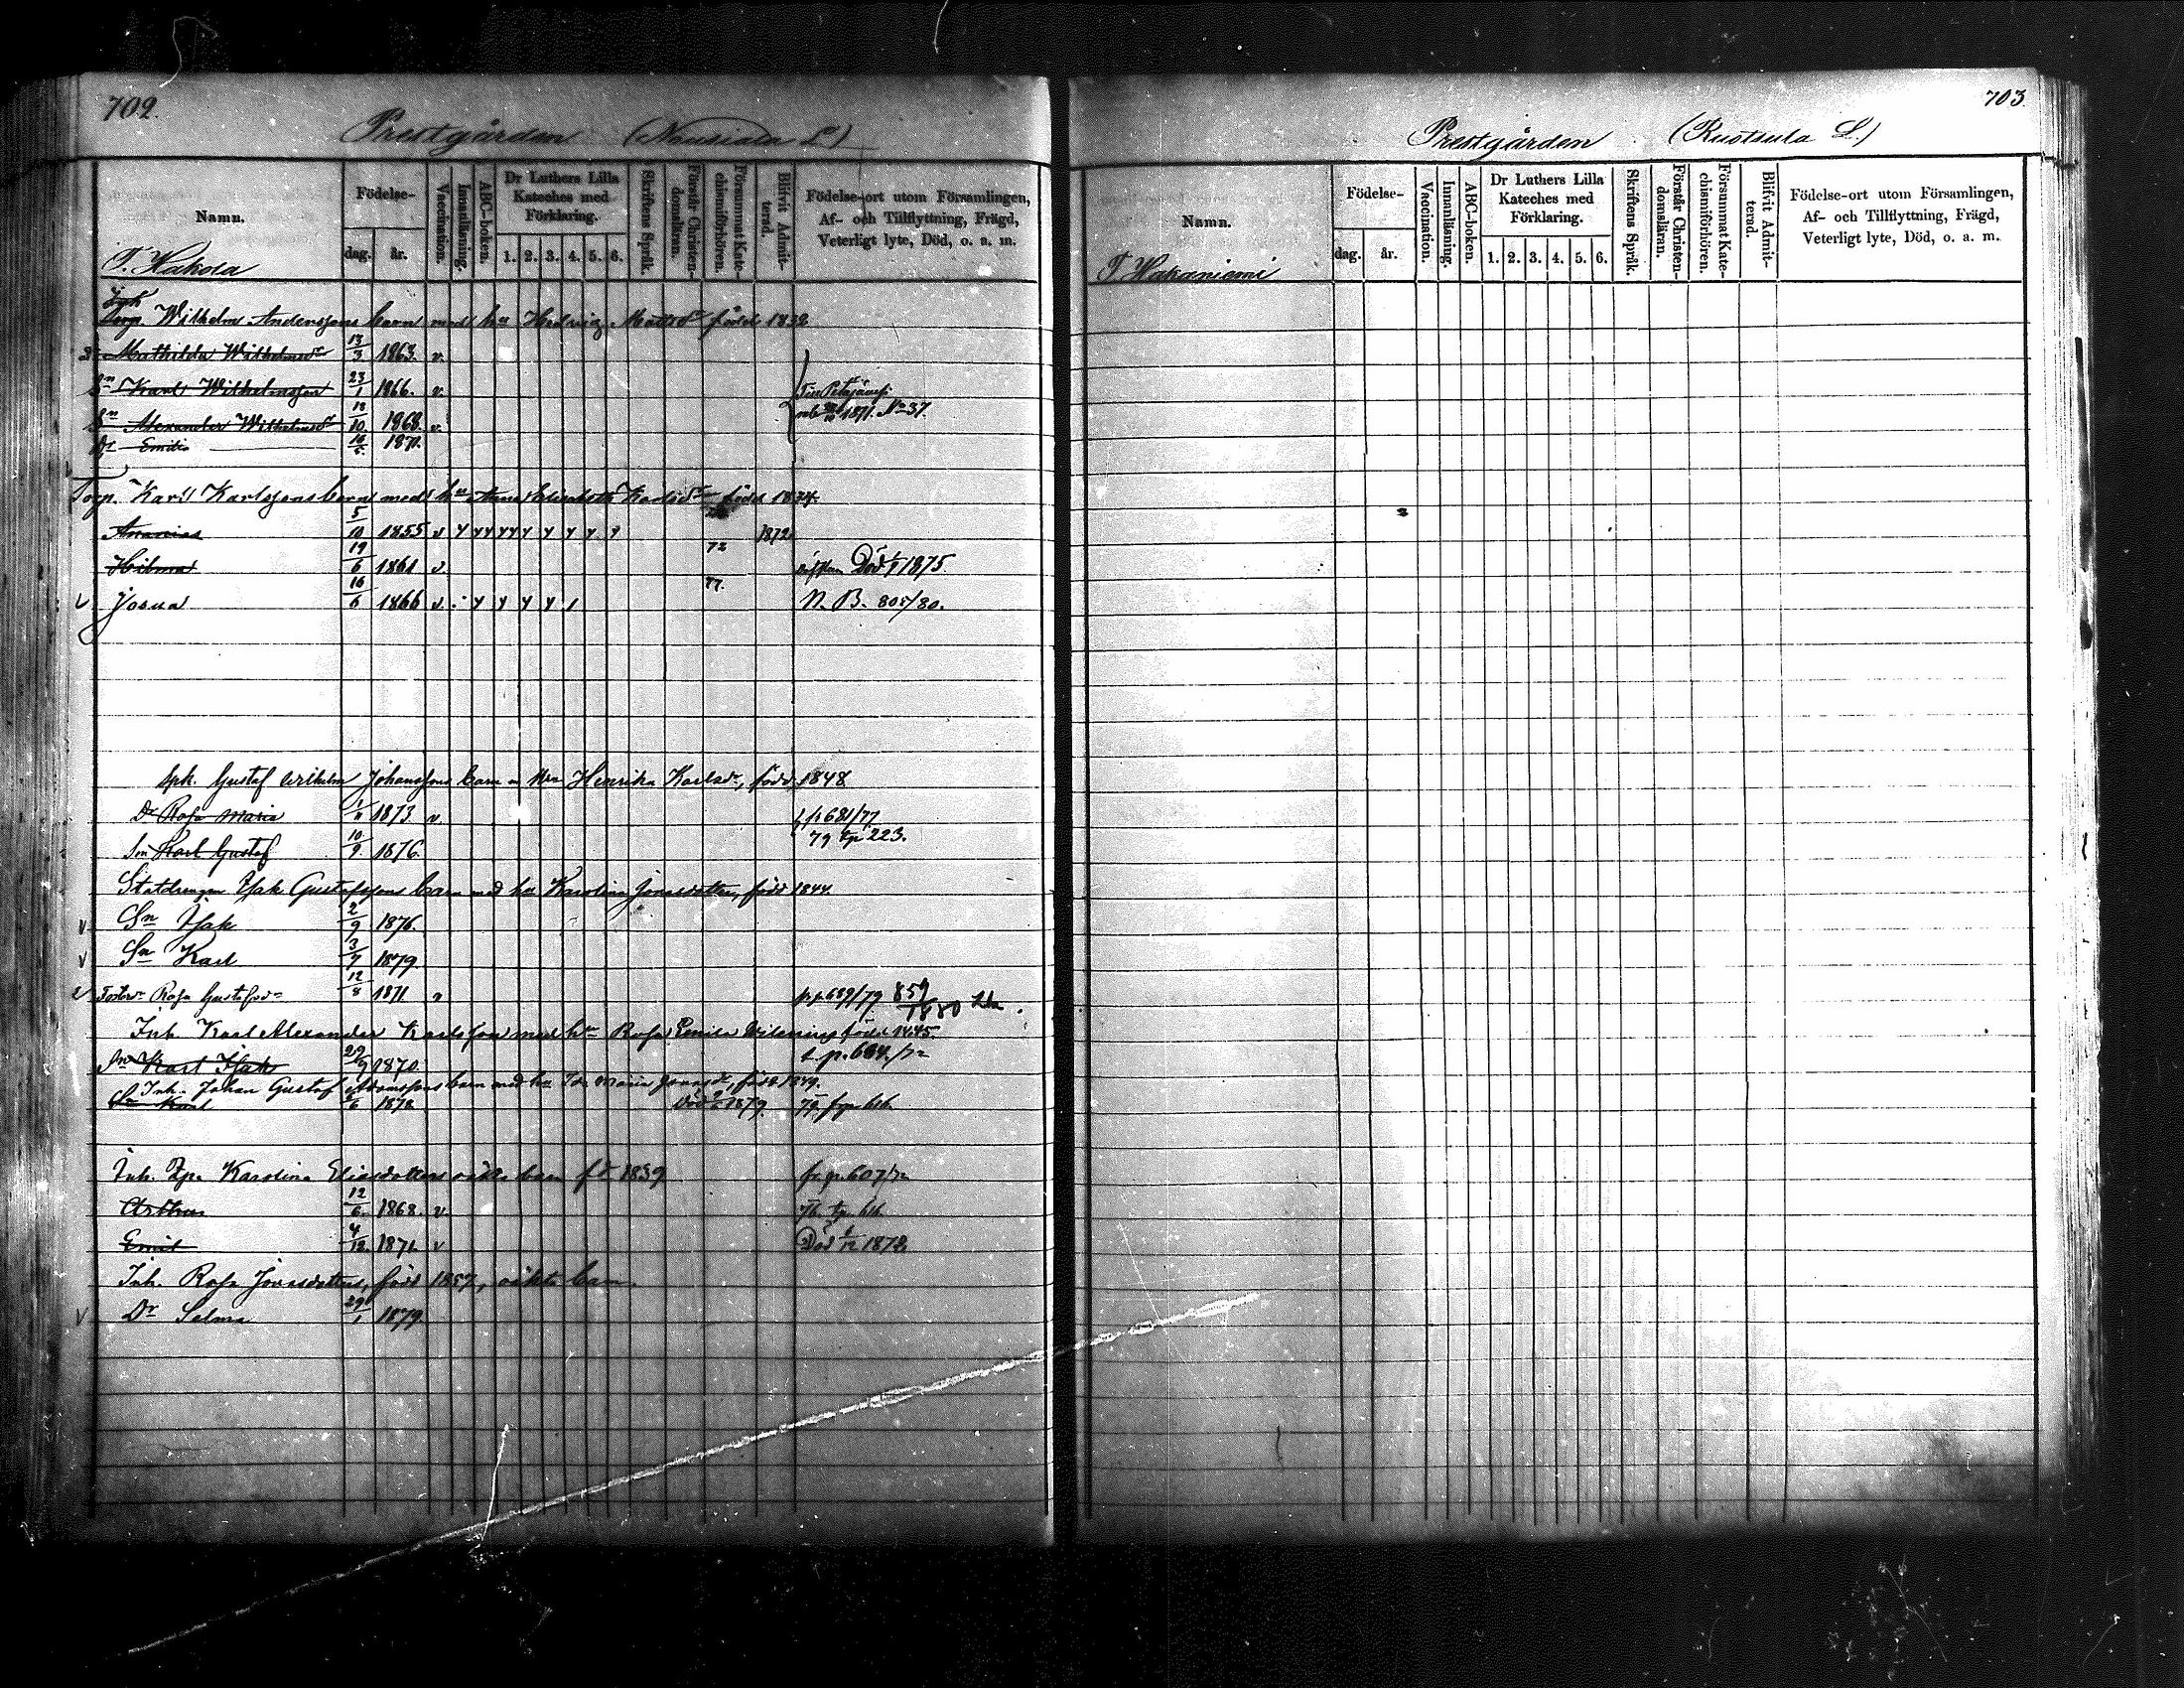 702.
Prestgården (Nausiala L.)
Namn.
Födelse-
dag.
år.
Vaccination.
Innanläsning.
ABC-boken.
Dr Luthers Lilla Kateches med Förklaring.
1. 2. 3. 4. 5. 6.
Skriftens Språk.
Förstår Christen-domsläran.
Försummat Kate-chismiförhören.
Blifvit Admit-terad.
Födelse-ort utom Församlingen,
Af- och Tillflyttning, Frägd,
Veterligt lyte, Död, o. a. m.
T. Hakola
Wilhelm Anderssons barn med hu Hedvig Mattsdr född 1832
Mathilda Wilhelmsdr 13/3 1863. v.
Sn Karl Wilhelmsson 23/1 1866. v.
Sn Alexander 10 1868. v. 1871. No 37.
Dr Emilia 1870.
Torp. Karl Karlssons barn med hu Anna Elisabeth Karlsdr född 1834.
Ananias 5/10 1855 v 1872
Hilma 19/6 1861 v. 72 Död 1875.
Josua 16/6 1866 v. 77. N. B. 805/80.
Spk. Gustaf Wilhelm Johanssons barn m Hu Henrika Karlsdr, född 1848
Dr Rosa Maria 1873 v fr 681/77
Son Karl Gustaf 10/9 1876. 79 tp 223.
Statdrengen Isak Gustafssons barn med hu Karolina Jonasdotter, född 1844.
Sn Isak 2/9 1876.
Sn Karl 3/7 1879
Fosterdr Rosa Gustafsdr 12/8 1871 v fr p. 689/79 859/1880
Inh. Karl Alexander Karlsson med hu Rosa Emilia född 1845.
Sn Karl Isak 1870. t. p. 694/72
Inh. Johan Gustaf Adamssons barn med hu Ida Maria Jonasdr, född 1849.
Sn Karl 1872 Död 1879
Inh. Karolina Eliasdotters oäkta barn fd 1839 fr. p. 607/72
Arthur 12/6 1868. v.
Emil 4/12 1871 v Död 1872
Inh. Rosa Jonasdotters, född 1857, oäkta barn.
Dr Selma 29/1 1879
703.
Prestgården (Rustsula L.)
Namn.
Födelse-
dag.
år.
Vaccination.
Innanläsning.
ABC-boken.
Dr Luthers Lilla Kateches med Förklaring.
1. 2. 3. 4. 5. 6.
Skriftens Språk.
Förstår Christen-domsläran.
Försummat Kate-chismiförhören.
Blifvit Admit-terad.
Födelse-ort utom Församlingen,
Af- och Tillflyttning, Frägd,
Veterligt lyte, Död, o. a. m.
T. Hakaniemi